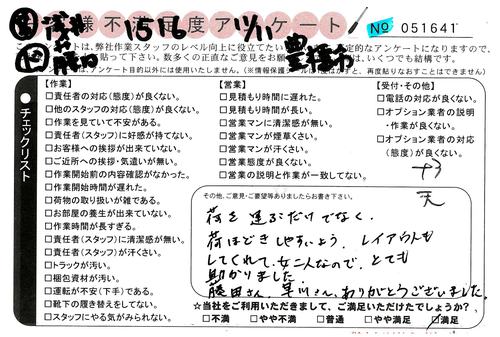 様不満足度アンケート
№ 051641
15176
11/11
豊橋市
アンケートは、弊社作業スタッフのレベル向上に役立てたい
定的なアンケートになりますので、
数多くの正直なご意見をお願
いつでも結構です。
アンケート目的以外には一切使用いたしません。(※情報保護シール
再度貼りなおすことはできません)
チェックリスト
【作業】
□責任者の対応(態度)が良くない。
□他のスタッフの対応(態度)が良くない。
□作業を見ていて不安がある。
□責任者(スタッフ)に好感が持てない。
□お客様への挨拶が出来ていない。
□ご近所への挨拶・気遣いが無い。
□作業開始前の内容確認がなかった。
□作業開始時間が遅れた。
□荷物の取り扱いが雑である。
□お部屋の養生が出来ていない。
□作業時間が長すぎる。
□責任者(スタッフ)に清潔感が無い。
□責任者(スタッフ)が汗くさい。
□トラックが汚い。
□梱包資材が汚い。
□運転が不安(下手)である。
□靴下の履き替えをしてない。
□スタッフにやる気がみられない。
【営業】
□見積もり時間に遅れた。
□見積もり時間が長い。
□営業マンに清潔感が無い。
□営業マンが煙草くさい。
□営業マンが汗くさい。
□営業態度が良くない。
□営業の説明と作業が一致してない。
【受付・その他】
□電話の対応が良くない。
□オプション業者の説明
・作業が良くない。
□オプション業者の対応
(態度)が良くない。
その他、ご意見・ご要望等ありましたらお書き下さい。
荷を運ぶだけでなく、
荷ほどきしやすいよう、レイアウトも
してくれて、女二人なので、とても
助かりました
藤田さん、早川さん、ありがとうございました。
☆当社をご利用いただきまして、ご満足いただけたでしょうか?
□不満 □やや不満 □普通 □やや満足 ☑満足